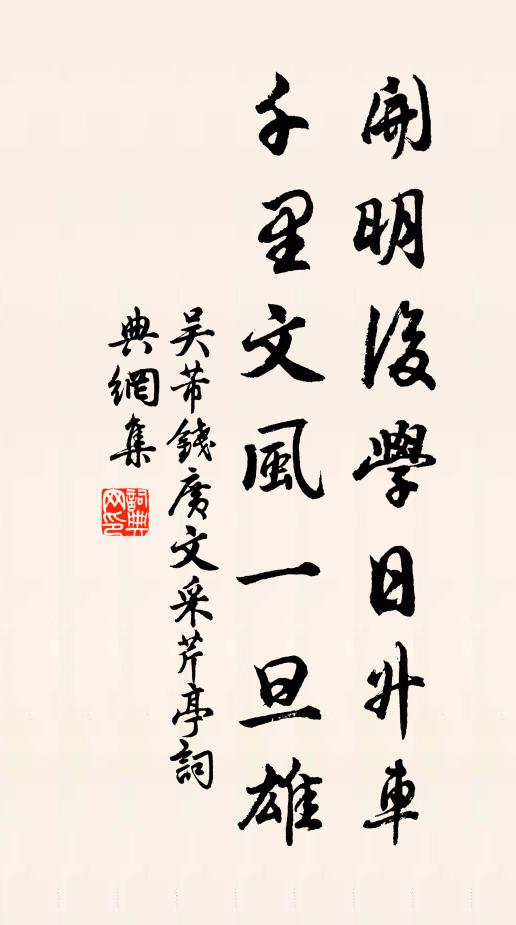 開明後學日升車
千里文風一旦雄
吳芾錢廣文采芹亭詞
典網集
詞典網印